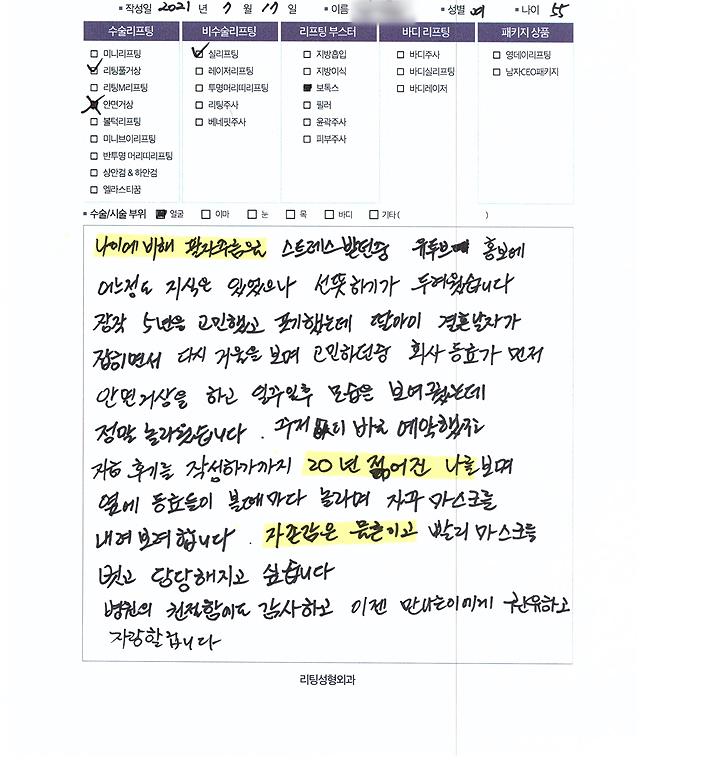 작성일 2021 년 7 월 17 일 이름 성별 여 나이 55
수술리프팅 비수술리프팅 리프팅 부스터 바디 리프팅 패키지 상품
미니리프팅 실리프팅 지방흡입 바디주사 영데이리프팅
리팅풀거상 레이저리프팅 지방이식 바디실리프팅 남자CEO패키지
리팅M리프팅 투명머리띠리프팅 보톡스 바디레이저
안면거상 리팅주사 필러
볼턱리프팅 베네핏주사 윤곽주사
미니브이리프팅 피부주사
반투명 머리띠리프팅
상안검 & 하안검
엘라스티꿈
수술/시술 부위 얼굴 이마 눈 목 바디 기타( )
나이에 비해 팔자주름으로 스트레스 받던중 유튜브 홍보에
어느정도 지식은 있었으나 선뜻하기가 두려웠습니다
잠깐 5년을 고민했고 포기했는데 딸아이 결혼날자가
잡히면서 다시 거울을 보며 고민하던중 회사 동료가 먼저
안면거상을 하고 일주일후 모습을 보여줬는데
정말 놀라웠습니다. 바로 예약했지요
후기를 작성하기까지 20년 젊어진 나를 보며
옆에 동료들이 볼때마다 놀라며 자꾸 마스크를
내려 보려합니다. 자존감은 뿜뿜이고 빨리 마스크를
벗고 당당해지고 싶습니다
병원의 친절함에도 감사하고 이젠 만나는이에게 권유하고
자랑할겁니다
리팅성형외과